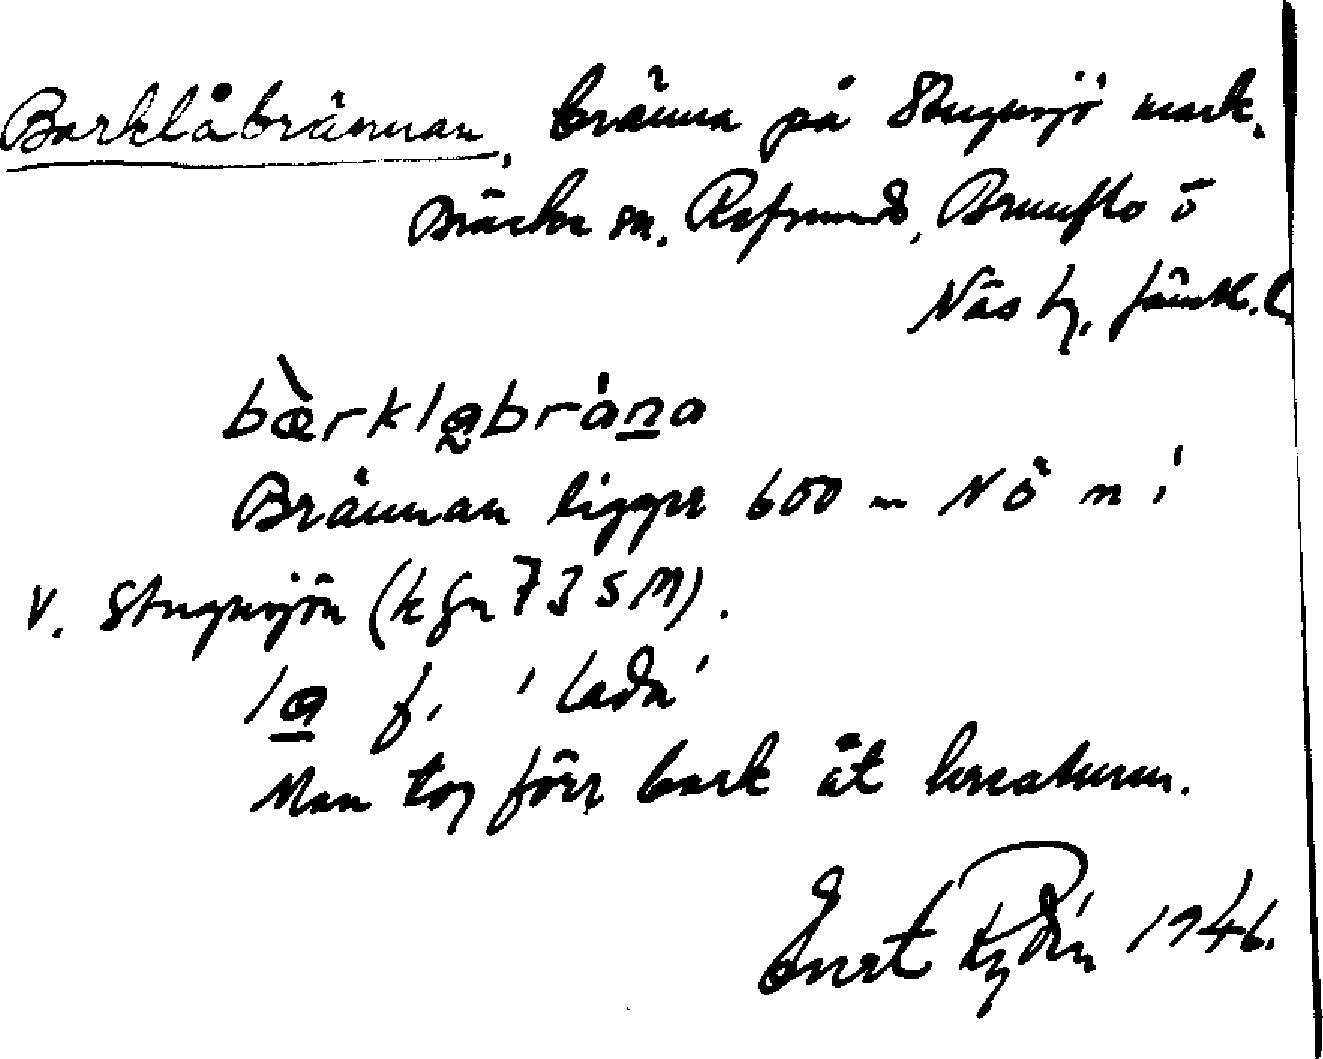 Barklåbrännan, bränna på Stugusjö mark.
Bräcke sn. Refsunds, Brunflo o
Näs tg, Jämtl. l.
bærklabräna
Brännan ligger 600 m NÖ n i
V. Stugusjön (kfn 735 M).
la f. 'lada'
Man tog förr bark åt kreaturen.
Evert Rydin 1946.